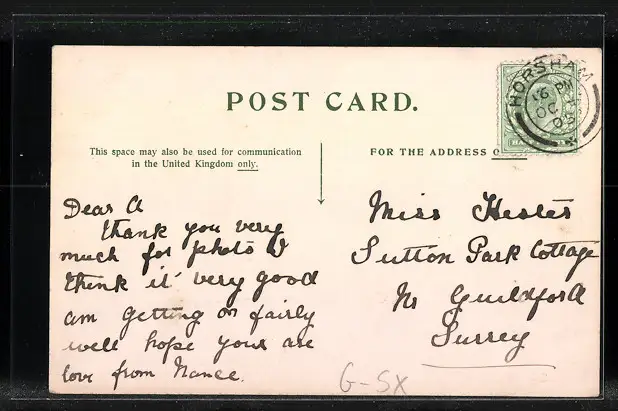 POST CARD.
This space may also be used for communication
in the United Kingdom only.
FOR THE ADDRESS
HORSHAM
PM
OC
05
HA
Dear A
thank you very
much for photo I
think it very good
am getting on fairly
well hope your are
love from Nance.
Miss Hester
Sutton Park Cottage
Nr Guildford
Surrey
G-SX